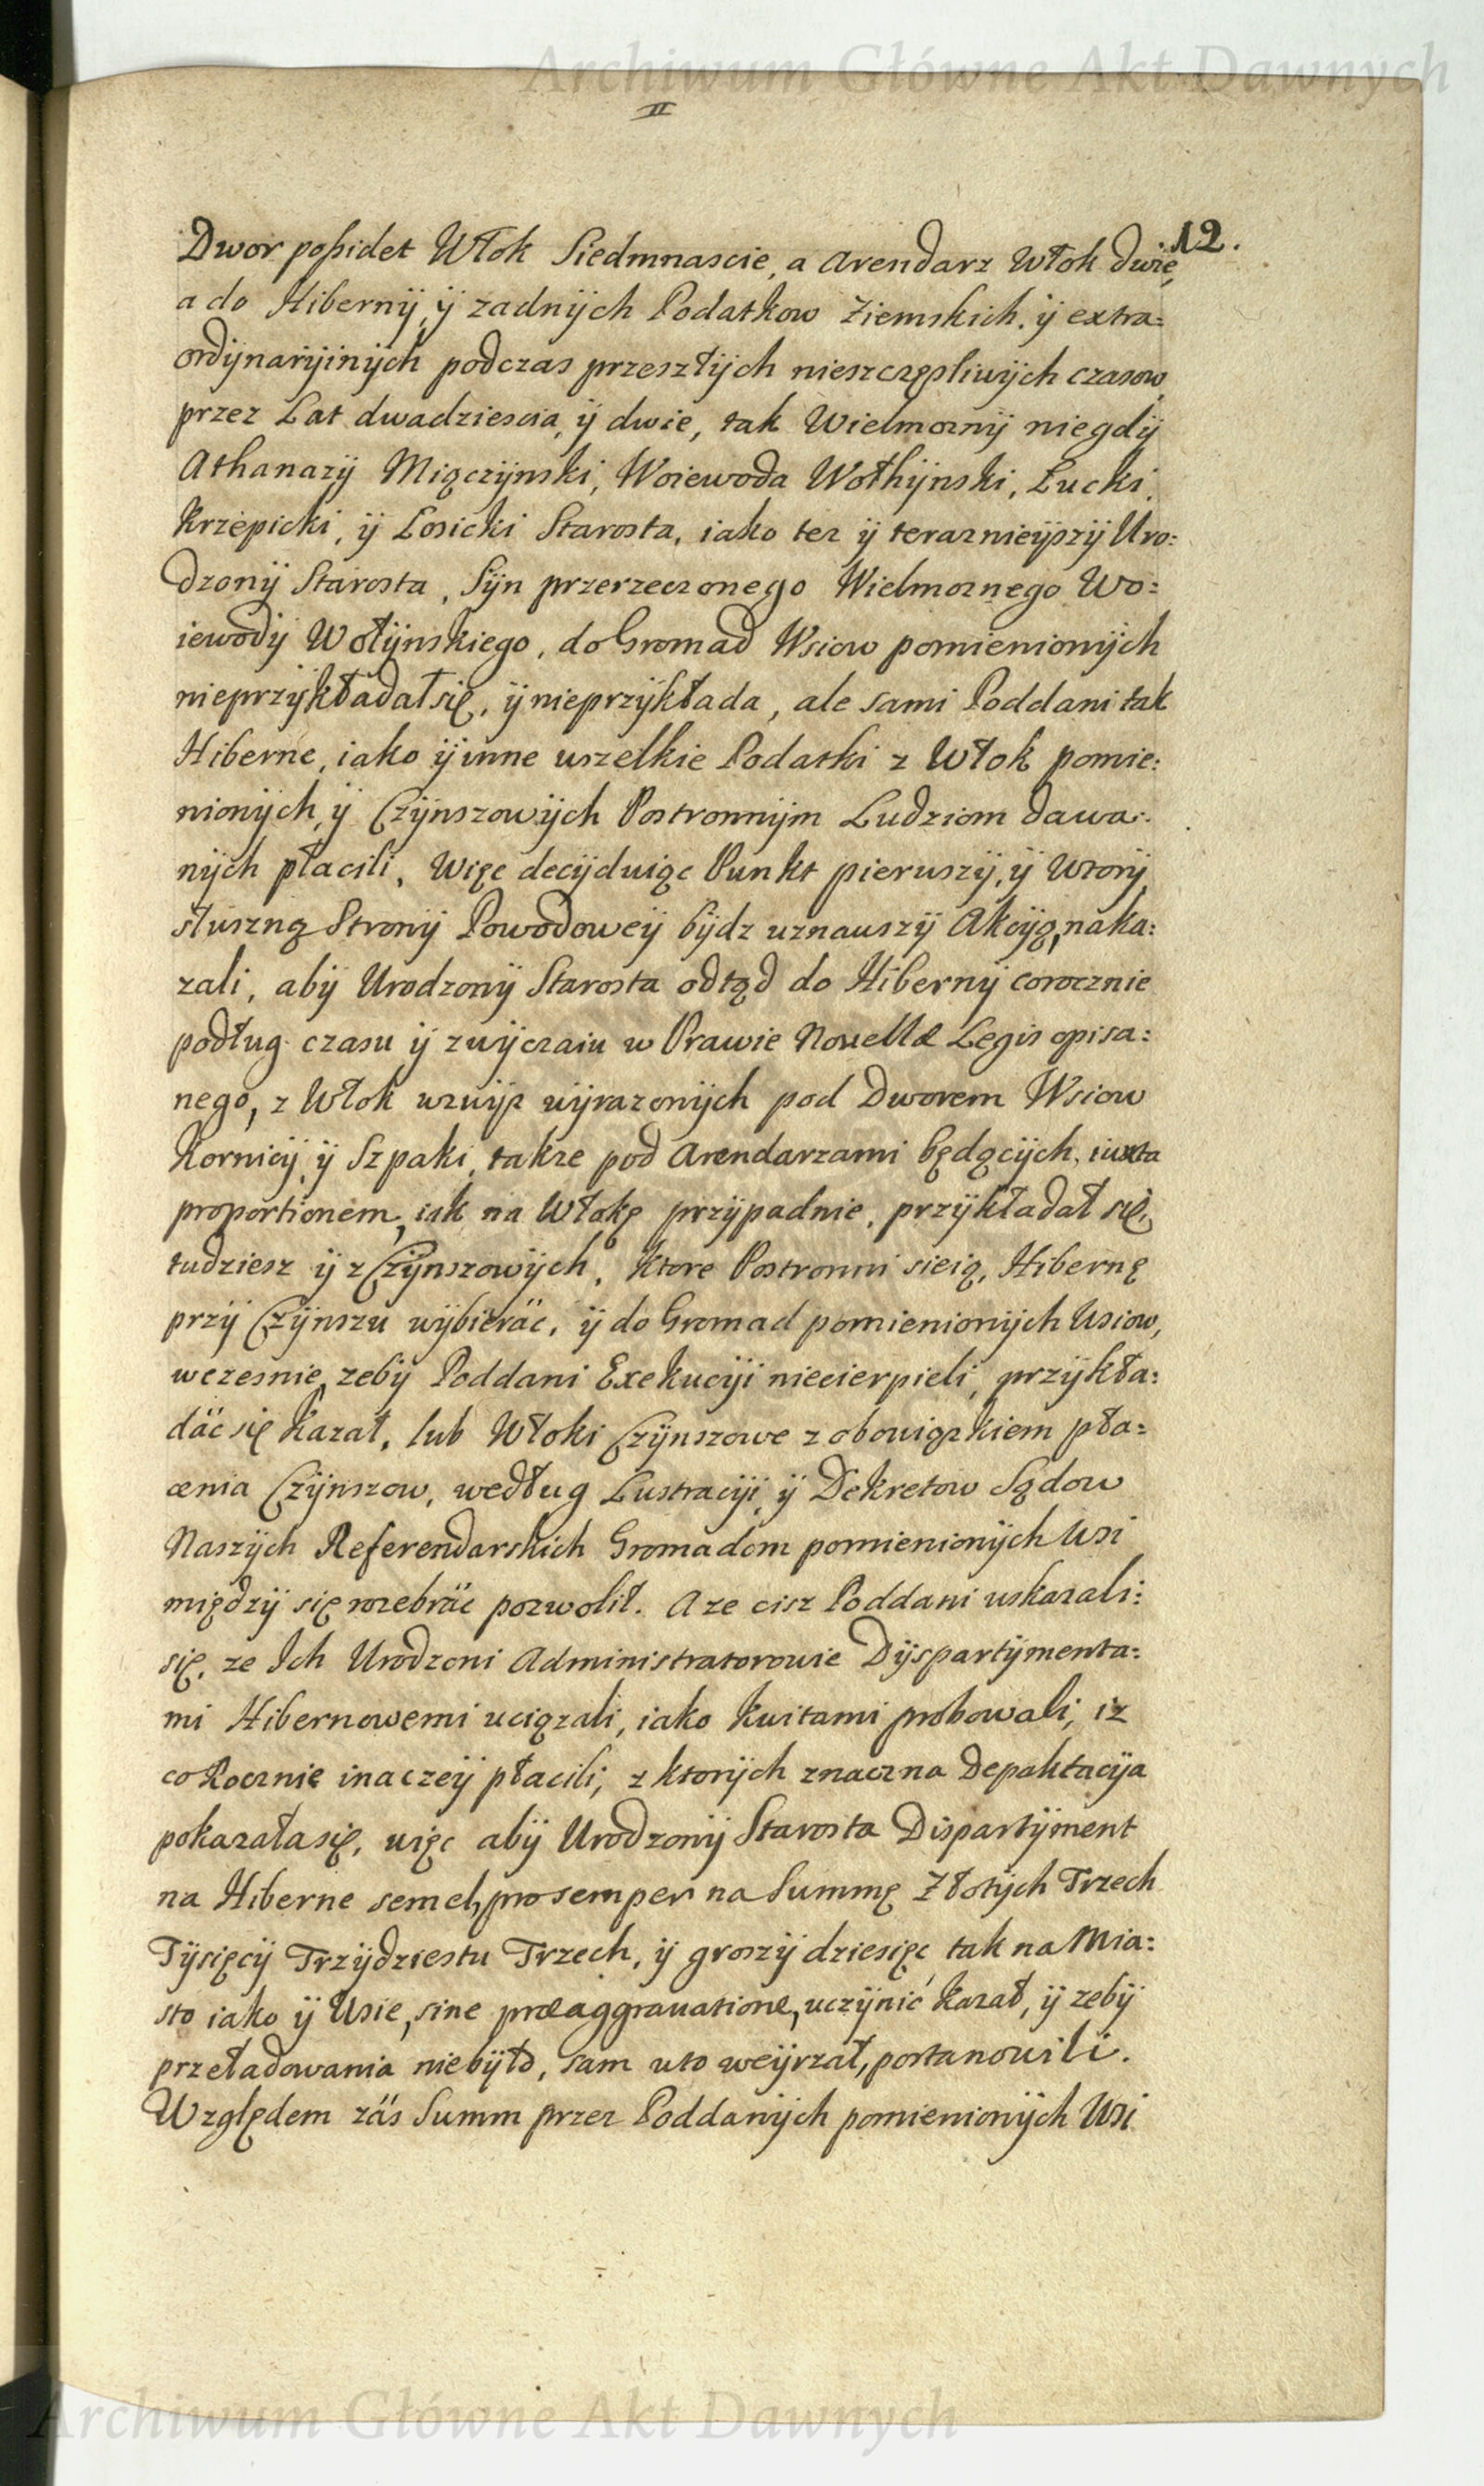 Archiwum Główne Akt Dawnych
II
12.
Dwor poßidet Włok Siedmnascie, a Arendarz Włok dwie,
a do Hibernÿ, ÿ zadnÿch Podatkow Ziemskich, ÿ extra=
ordÿnarÿinÿch podczas przeszłÿch nieszczęsliwÿch czasow,
przez Lat dwadziescia, ÿ dwie, tak Wielmoznÿ niegdÿ
Athanazÿ Miączÿnski, Woiewoda Wołhÿnski, Łucki,
Krzepicki, ÿ Łosicki Starosta, iako tez ÿ teraznieÿszÿ Uro=
dzonÿ Starosta, Sÿn przerzeczonego Wielmoznego Wo=
iewodÿ Wołÿnskiego, do Gromad Wsiow pomienionÿch
nieprzÿkładał się, ÿ nieprzÿkłada, ale sami Poddani tak
Hiberne, iako ÿ inne wszelkie Podatki z Włok pomie=
nionÿch, ÿ Czÿnszowÿch Postronnÿm Ludziom dawa=
nÿch płacili, Więc decÿduiąc Punkt pierwszÿ, ÿ wtorÿ,
słuszną Stronÿ Powodoweÿ bÿdz uznawszÿ Akcÿą, naka=
zali, abÿ Urodzonÿ Starosta odtąd do Hibernÿ corocznie
podług czasu ÿ zwÿczaiu w Prawie Novellæ Legis opisa=
nego, z Włok wzwÿz wÿrazonÿch pod Dworem Wsiow
Kornicÿ, ÿ Szpaki, takze pod Arendarzami będącÿch, iuxta
proportionem, iak na Włokę przÿpadnie, przÿkładał się,
tudziesz ÿ z Czÿnszowÿch, ktore Postronni sieią, Hibernę
przÿ Czÿnszu wÿbieräc, ÿ do Gromad pomienionÿch Wsiow,
wczesnie, zebÿ Poddani Exekucÿi niecierpieli, przÿkła=
däc się kazał, lub Włoki Czÿnszowe z obowiązkiem pła=
cenia Czÿnszow, według Lustracÿi, ÿ Dekretow Sądow
Naszÿch Referendarskich Gromadom pomienionÿch Wsi
międzÿ się rozebräc pozwolił. A ze cisz Poddani uskarzali=
się, ze Ich Urodzeni Administratorowie Dÿspartÿmenta=
mi Hibernowemi uciązali, iako kwitami probowali, iz
co Rocznie inaczeÿ płacili, z ktorÿch znaczna Depaktacÿa
pokazała się, więc abÿ Urodzonÿ Starosta Dispartÿment
na Hiberne semel, pro semper na Summę Złotÿch Trzech
Tÿsięcÿ Trzÿdziestu Trzech, ÿ groszÿ dziesięc tak na Mia=
sto iako ÿ Wsie, sine præaggravatione, uczÿnić kazał, ÿ zebÿ
przeładowania niebÿło, sam wto weÿrzał, postanowili.
Względem zäs Summ przez Poddanÿch pomienionÿch Wsi
Archiwum Główne Akt Dawnych